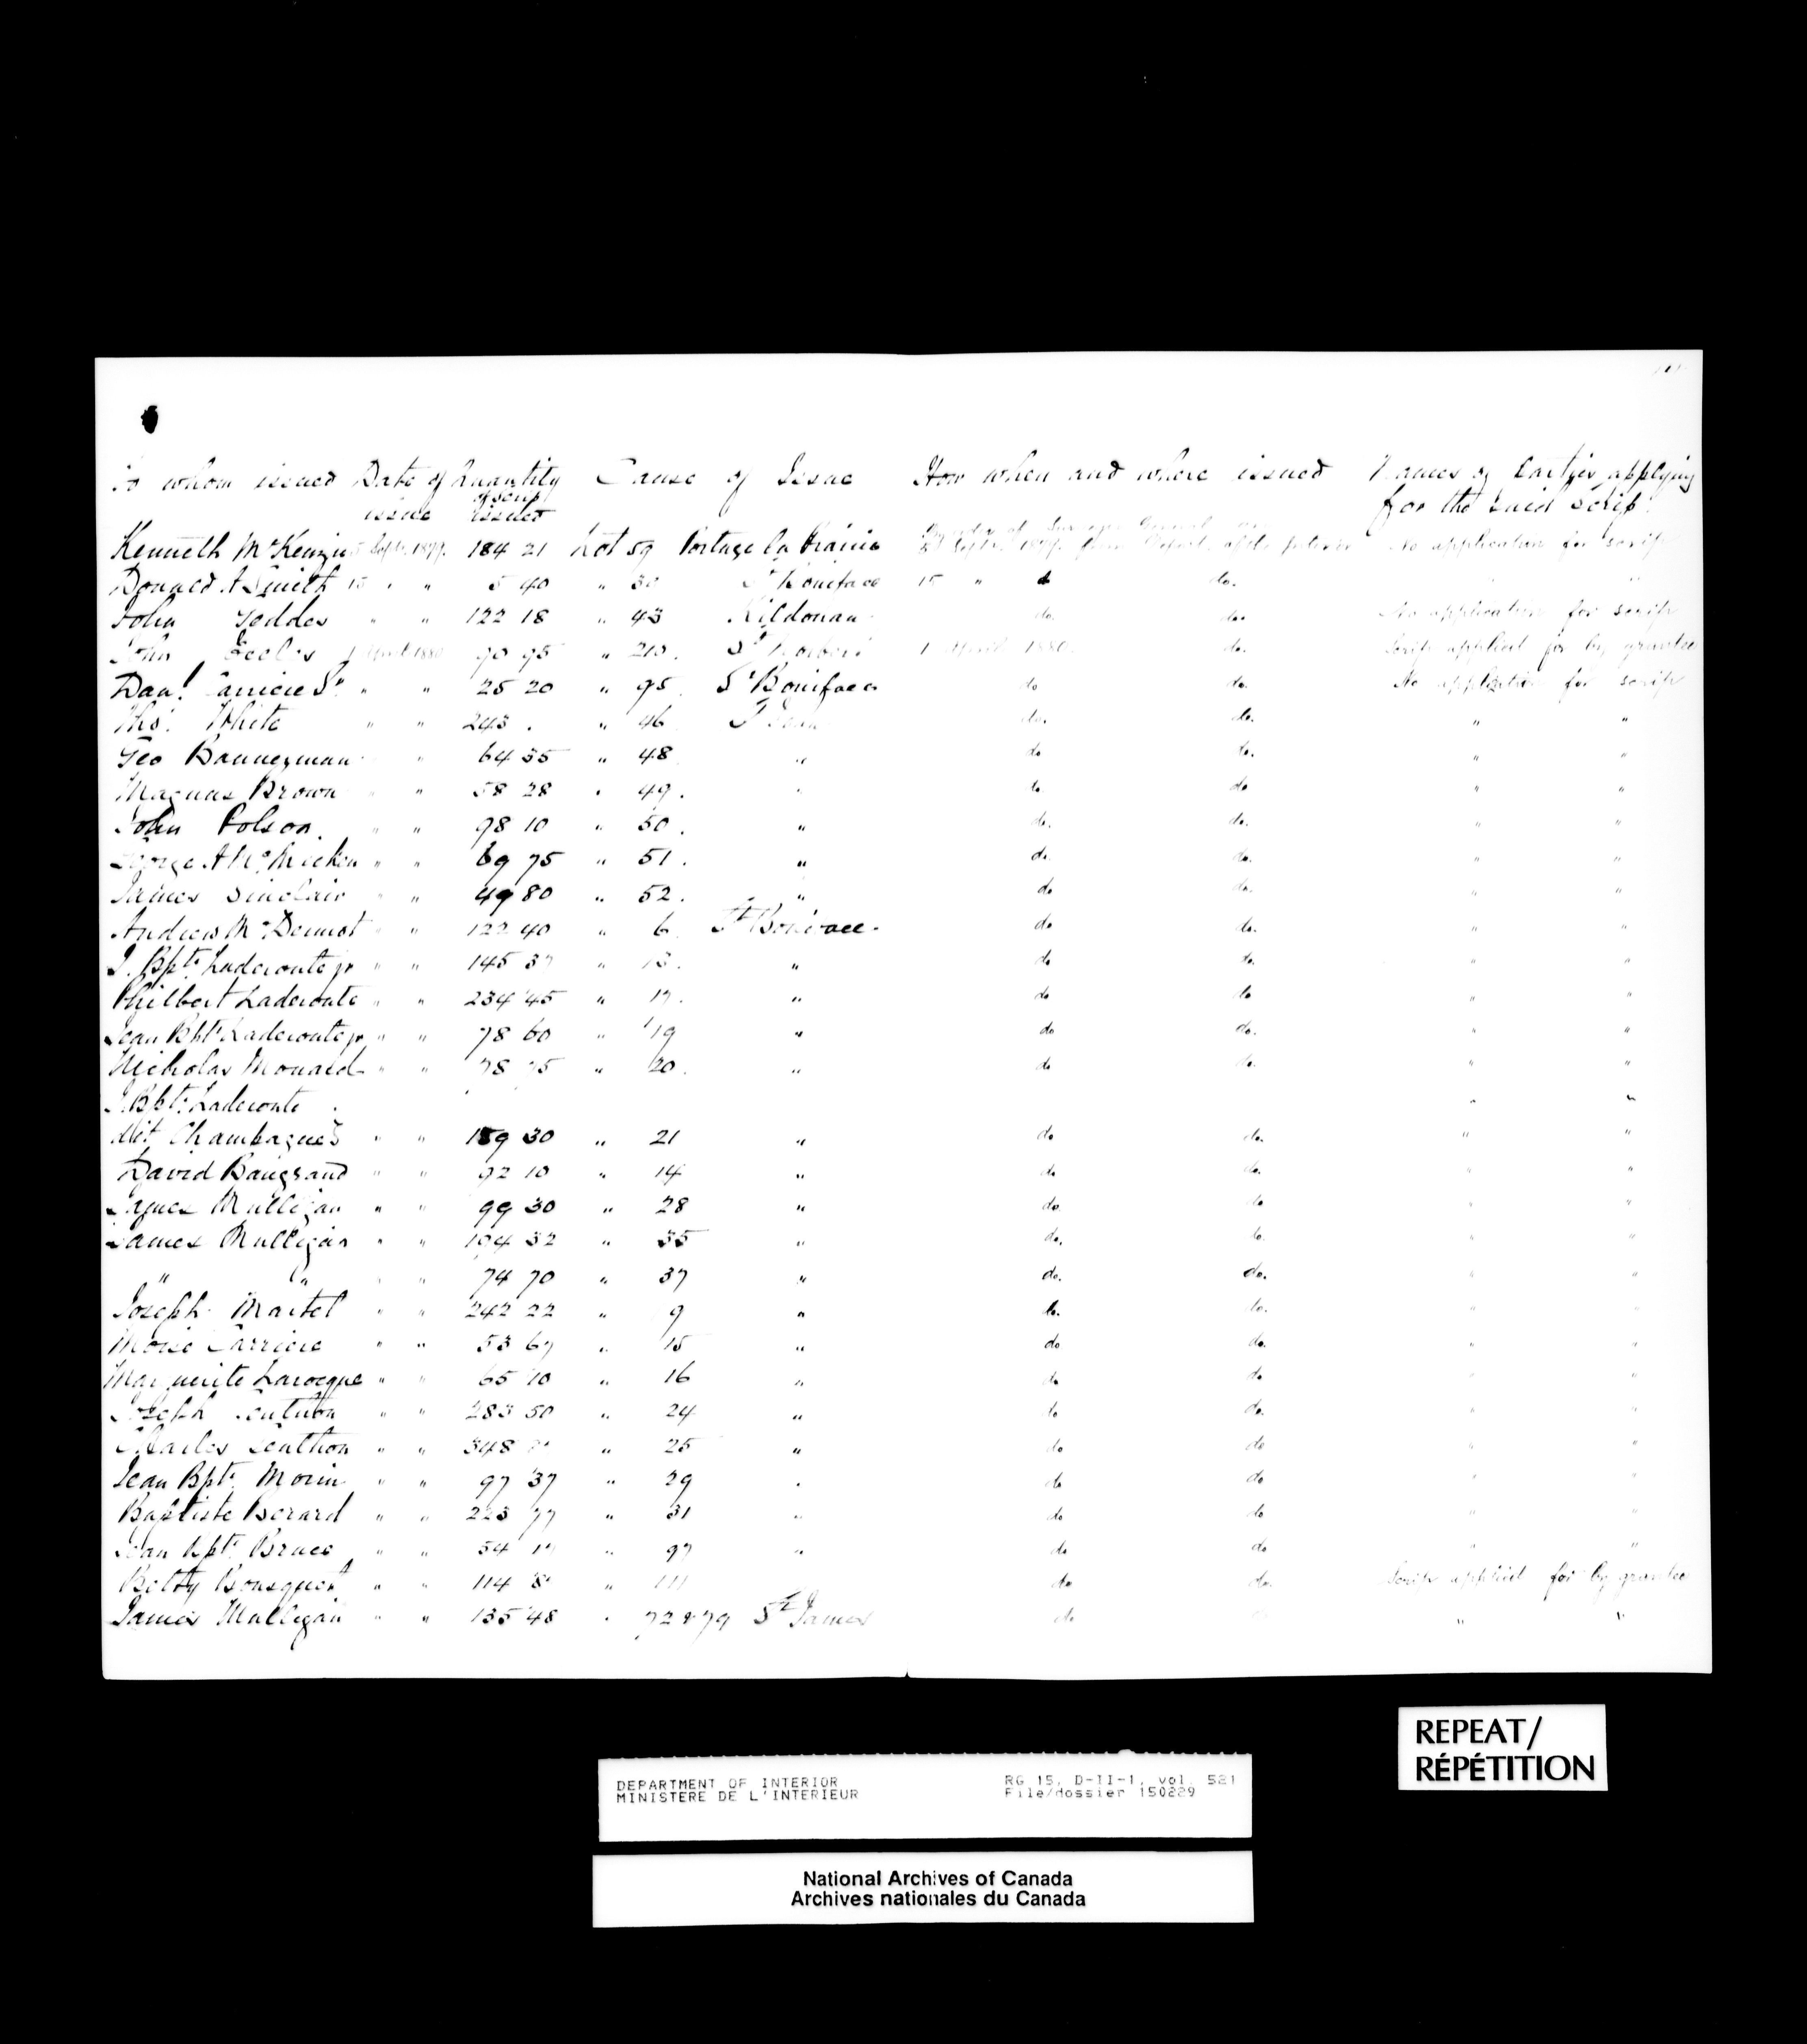 To whom issued Date of issue Quantity of scrip issued Cause of Issue How when and where issued Names of Parties applying for the said scrip.
Kenneth McKenzie Sept. 1879. 184 21 Lot 59 Portage la Prairie No application for scrip
Donald A Smith 15 " " 5 40 " 30 St Boniface 15 " do do.
John Geddes " " 122 18 " 43 Kildonan do. do. No application for scrip
John Eccles 1 April 1880 90 95 " 210. St Norbert 1 April 1880. do. Scrip applied for by grantee
Danl. Carriere Sr. " " 25 20 " 95. St Boniface do do. No application for scrip
Thos. White " " 243 . " 46 do. do. " "
Geo Bannerman " 64 35 " 48 " do do. " "
Magnus Brown " 58 28 " 49. do do " "
John Polson. " " 98 10 " 50. " do. do. " "
George A McMicken " " 69 75 " 51. " do. do. " "
James Sinclair " 49 80 " 52. " do do. " "
Andrew McDermot " 122 40 " 6 St Boniface. do do. " "
J. Bpte. Laderoute jr " " 145 37 " 13. " do do. " "
Philbert Laderoute " " 234 45 " 17. " do do " "
Jean Bpte. Laderoute jr " " 78 60 " 19 " do do. " "
Nicholas Mouard " " 78 75 " 20. " do do. " "
J. Bpte. Laderoute " "
Chambagues " " 189 30 " 21 " do do. " "
David Baugrand " " 92 10 " 14 " do do. " "
Agnes Mulligan " " 99 30 " 28 " do do " "
James Mulligan " " 104 32 " 35 " do. do. " "
" " " " 74 70 " 37 " do. do. " "
Joseph Martel " " 242 22 " 9 " do. do. " "
Moise Carriere " " 53 67 " 15 " do do. " "
Marguerite Larocque " " 65 10 " 16 " do do " "
Joseph " " 283 50 " 24 " do do. " "
Charles Centhon " " 348 " 25 " do do " "
Jean Bpte. Morin " " 97 37 " 29 do do " "
Baptiste Berard " " 223 77 " 31 " do do " "
Jean Bpte. Bruce " " 54 17 " 97 " do do " "
Betsy Bousquet " " 114 8 " 111 do do. Scrip applied for by grantee
James Mulligan " " 135 48 " 72 & 79 St James do do " "
REPEAT/
RÉPÉTITION
DEPARTMENT OF INTERIOR RG 15, D-II-1, vol. 521
MINISTERE DE L'INTERIEUR File/dossier 150229
National Archives of Canada
Archives nationales du Canada